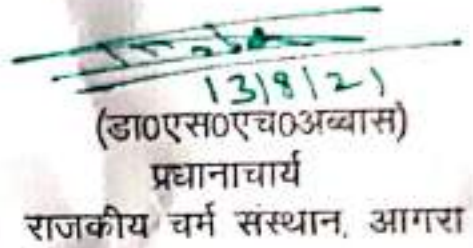 13|8|21
(डा0एस0एच0अब्बास)
प्रधानाचार्य
राजकीय चर्म संस्थान, आगरा